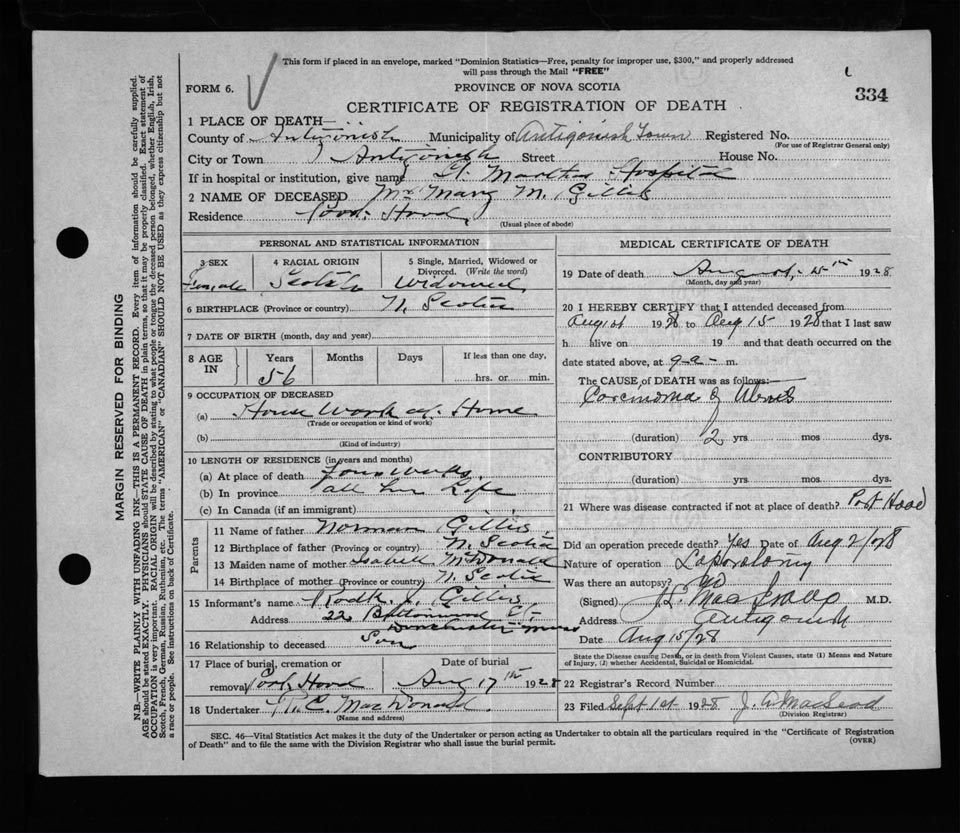 This form if placed in an envelope, marked "Dominion Statistics—Free, penalty for improper use, $300," and properly addressed
will pass through the Mail "FREE"
FORM 6.
PROVINCE OF NOVA SCOTIA
334
CERTIFICATE OF REGISTRATION OF DEATH
1 PLACE OF DEATH—
County of Antigonish Municipality of Antigonish Town Registered No.
(For use of Registrar General only)
City or Town Antigonish Street House No.
If in hospital or institution, give name St. Marthas Hospital
2 NAME OF DECEASED Mrs Mary M. Gillis
Residence Port Hood
(Usual place of abode)
PERSONAL AND STATISTICAL INFORMATION
3 SEX 4 RACIAL ORIGIN 5 Single, Married, Widowed or Divorced. (Write the word)
Female Scotch Widowed
6 BIRTHPLACE (Province or country) N. Scotia
7 DATE OF BIRTH (month, day and year)
8 AGE IN Years Months Days If less than one day,
56 hrs. or min.
9 OCCUPATION OF DECEASED
(a) House Work at Home
(Trade or occupation or kind of work)
(b)
(Kind of industry)
10 LENGTH OF RESIDENCE (in years and months)
(a) At place of death Four Weeks
(b) In province all her Life
(c) In Canada (if an immigrant)
Parents
11 Name of father Norman Gillis
12 Birthplace of father (Province or country) N. Scotia
13 Maiden name of mother Isabell McDonald
14 Birthplace of mother (Province or country) N. Scotia
15 Informant's name Rodk. J. Gillis
Address 22 St.
Dorchester Mass
16 Relationship to deceased Son
17 Place of burial, cremation or Date of burial
removal Port Hood Aug 17th 1928
18 Undertaker C. MacDonald
(Name and address)
MEDICAL CERTIFICATE OF DEATH
19 Date of death August, 15th 1928
(Month, day and year)
20 I HEREBY CERTIFY that I attended deceased from
Aug 1st 1928 to Aug 15 1928 that I last saw
h alive on 19 and that death occurred on the
date stated above, at 9 a m.
The CAUSE of DEATH was as follows:
Carcinoma of Uterus
(duration) 2 yrs. mos dys.
CONTRIBUTORY
(duration) yrs mos dys.
21 Where was disease contracted if not at place of death? Port Hood
Did an operation precede death? Yes Date of Aug 2/28
Nature of operation Laparotomy
Was there an autopsy? No
(Signed) M.D.
Address Antigonish
Date Aug 15/28
State the Disease causing Death, or in death from Violent Causes, state (1) Means and Nature
of Injury, (2) whether Accidental, Suicidal or Homicidal.
22 Registrar's Record Number
23 Filed Sept 1st 1928 J. A. MacLeod
(Division Registrar)
SEC. 46—Vital Statistics Act makes it the duty of the Undertaker or person acting as Undertaker to obtain all the particulars required in the "Certificate of Registration
of Death" and to file the same with the Division Registrar who shall issue the burial permit.
(OVER)
MARGIN RESERVED FOR BINDING
N.B.—WRITE PLAINLY WITH UNFADING INK—THIS IS A PERMANENT RECORD. Every item of information should be carefully supplied.
AGE should be stated EXACTLY. PHYSICIANS should STATE CAUSE OF DEATH in plain terms, so that it may be properly classified. Exact statement of
OCCUPATION is very important. RACIAL ORIGIN will be described by stating to what people or tongue the deceased person belonged, whether English, Irish,
Scotch, French, German, Russian, Ruthenian, etc. The terms "AMERICAN" or "CANADIAN" SHOULD NOT BE USED as they express citizenship but not
a race or people. See instructions on back of Certificate.